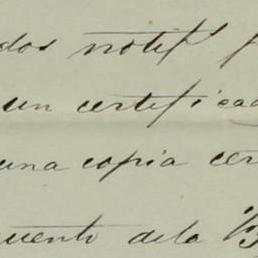 dos notifs
un certificad
una copia cer
cuento dela